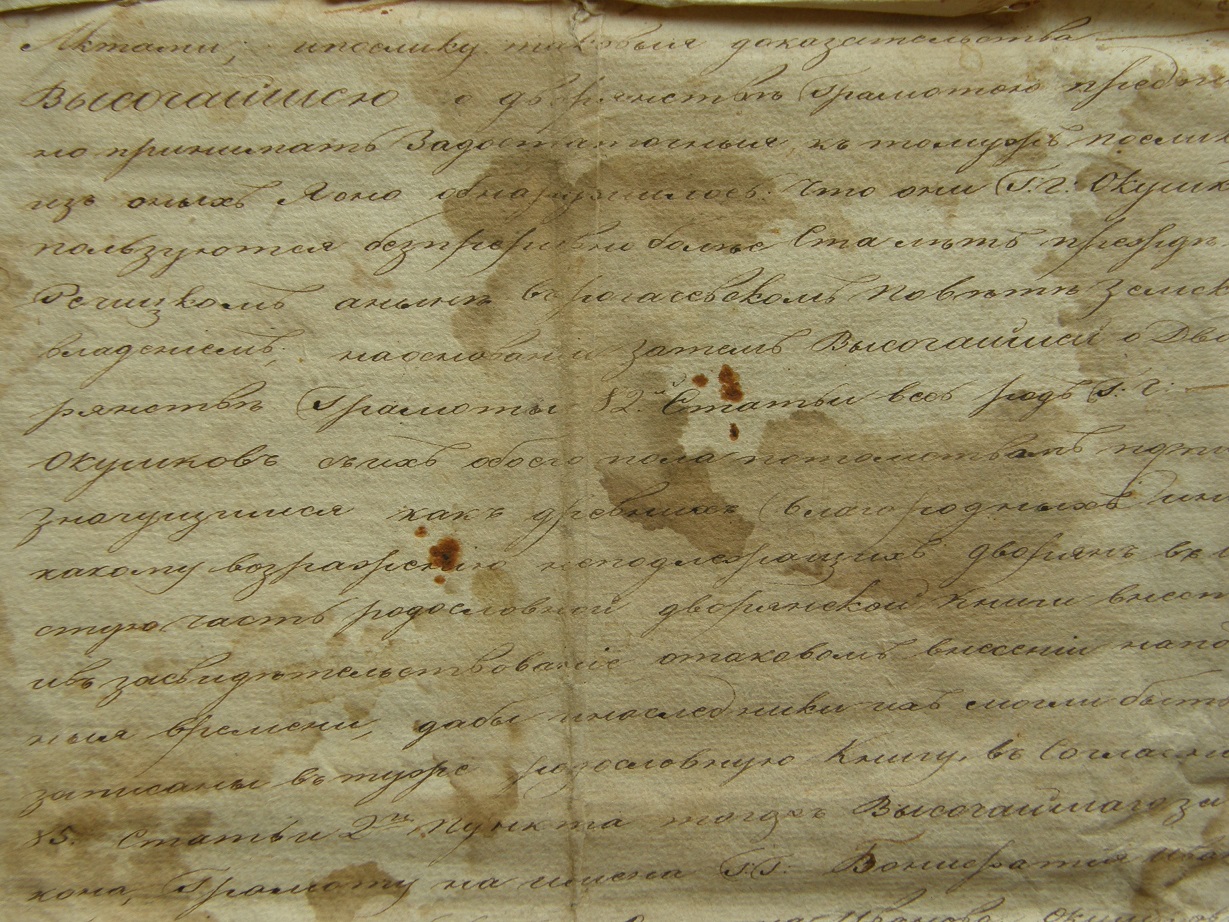 Актами, и поелику таковыя доказательства
Высочайшею о дворянствѣ Грамотою предпи
но принимать Задостаточныя, къ томужъ поелик
изъ оныхъ Ясно обнаружилось: Что они Г: Г: Окулик
пользуются безпрерывно болѣе Ста лѣтъ преждѣ
Речицкомъ анынѣ врогачевскомъ Повѣтѣ Земск
владѣніемъ; наосновании затемъ Высочайшей о Дво
рянствѣ Грамоты 82.й Статьи весь родъ Г: Г:
Окуликовъ съихъ обоего пола потомствомъ
значущимися какъ древнихъ благородныхъ ини
какому возраженію неподлежащихъ дворянъ в
стую часть родословной дворянской Книги внест
ивъ засвидѣтельствование отаковомъ внесеніи
ныя времени, дабы инаследники ихъ могли быть
записаны въ туже родословную Книгу, въ Согласн
85. Статьи 2го пункта тогожъ Высочайшаго за
кона, Грамоту на имена Г: Г: Бонифатія